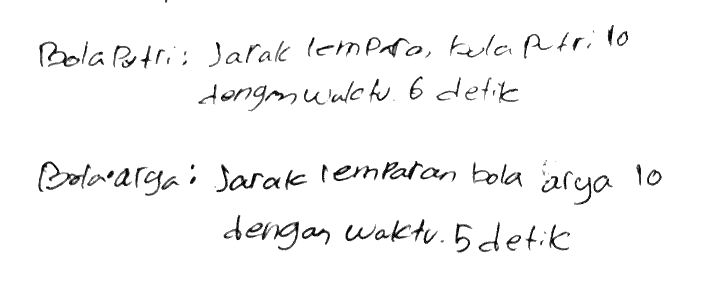 Bola Putri: Jarak lemparo, bola Putri 10
dengan waktu. 6 detik
Bola arga: Jarak lemparan bola arya 10
dengan waktu. 5 detik